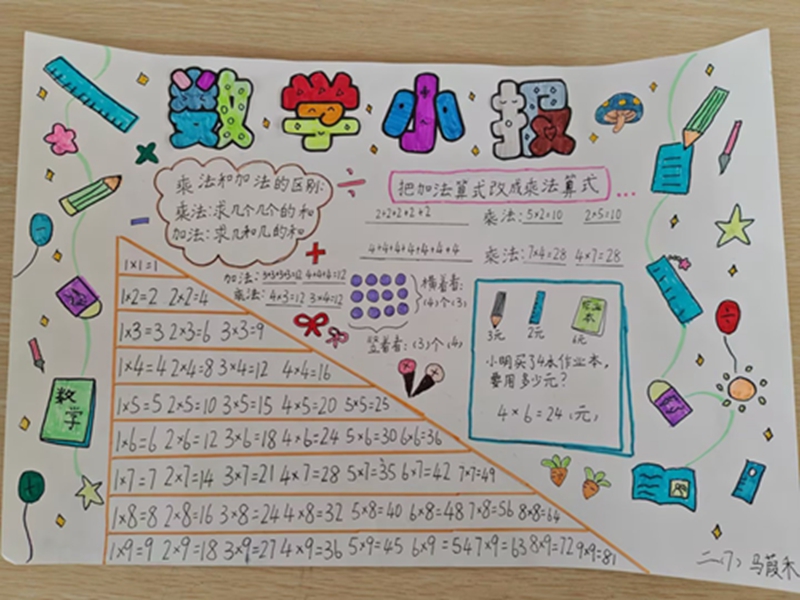 数学小报
乘法和加法的区别:
乘法:求几个几个的和
加法:求几和几的和
把加法算式改成乘法算式...
2+2+2+2+2 乘法:5×2=10 2×5=10
4+4+4+4+4+4+4 乘法:7×4=28 4×7=28
加法:3+3+3+3=12 4+4+4=12
乘法:4×3=12 3×4=12
横着看:
(4)个(3)
竖着看:(3)个(4)
3元 2元 6元
作业本
小明买了4本作业本,
要用多少元?
4×6=24(元)
数学
1×1=1
1×2=2 2×2=4
1×3=3 2×3=6 3×3=9
1×4=4 2×4=8 3×4=12 4×4=16
1×5=5 2×5=10 3×5=15 4×5=20 5×5=25
1×6=6 2×6=12 3×6=18 4×6=24 5×6=30 6×6=36
1×7=7 2×7=14 3×7=21 4×7=28 5×7=35 6×7=42 7×7=49
1×8=8 2×8=16 3×8=24 4×8=32 5×8=40 6×8=48 7×8=56 8×8=64
1×9=9 2×9=18 3×9=27 4×9=36 5×9=45 6×9=54 7×9=63 8×9=72 9×9=81
二(7) 马葭禾